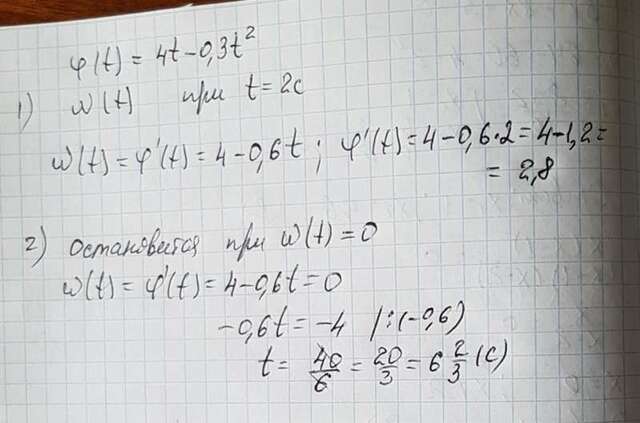 φ(t) = 4t - 0,3t²
1) ω(t) при t = 2с
ω(t) = φ'(t) = 4 - 0,6t ; φ'(t) = 4 - 0,6·2 = 4 - 1,2 =
= 2,8
2) Остановится при ω(t) = 0
ω(t) = φ'(t) = 4 - 0,6t = 0
-0,6t = -4 /:(-0,6)
t = 40/6 = 20/3 = 6 2/3 (с)